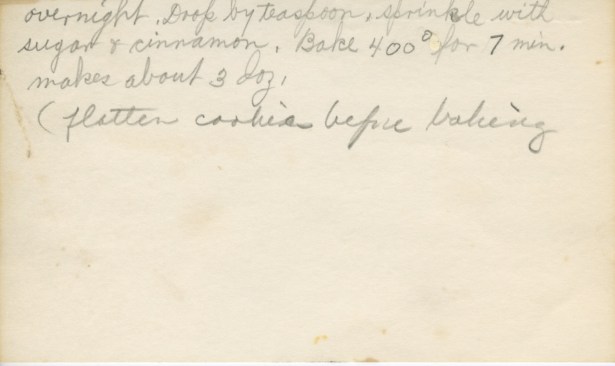 overnight. Drop by teaspoon, sprinkle with
sugar & cinnamon. Bake 400° for 7 min.
makes about 3 doz.
(flatten cookies before baking